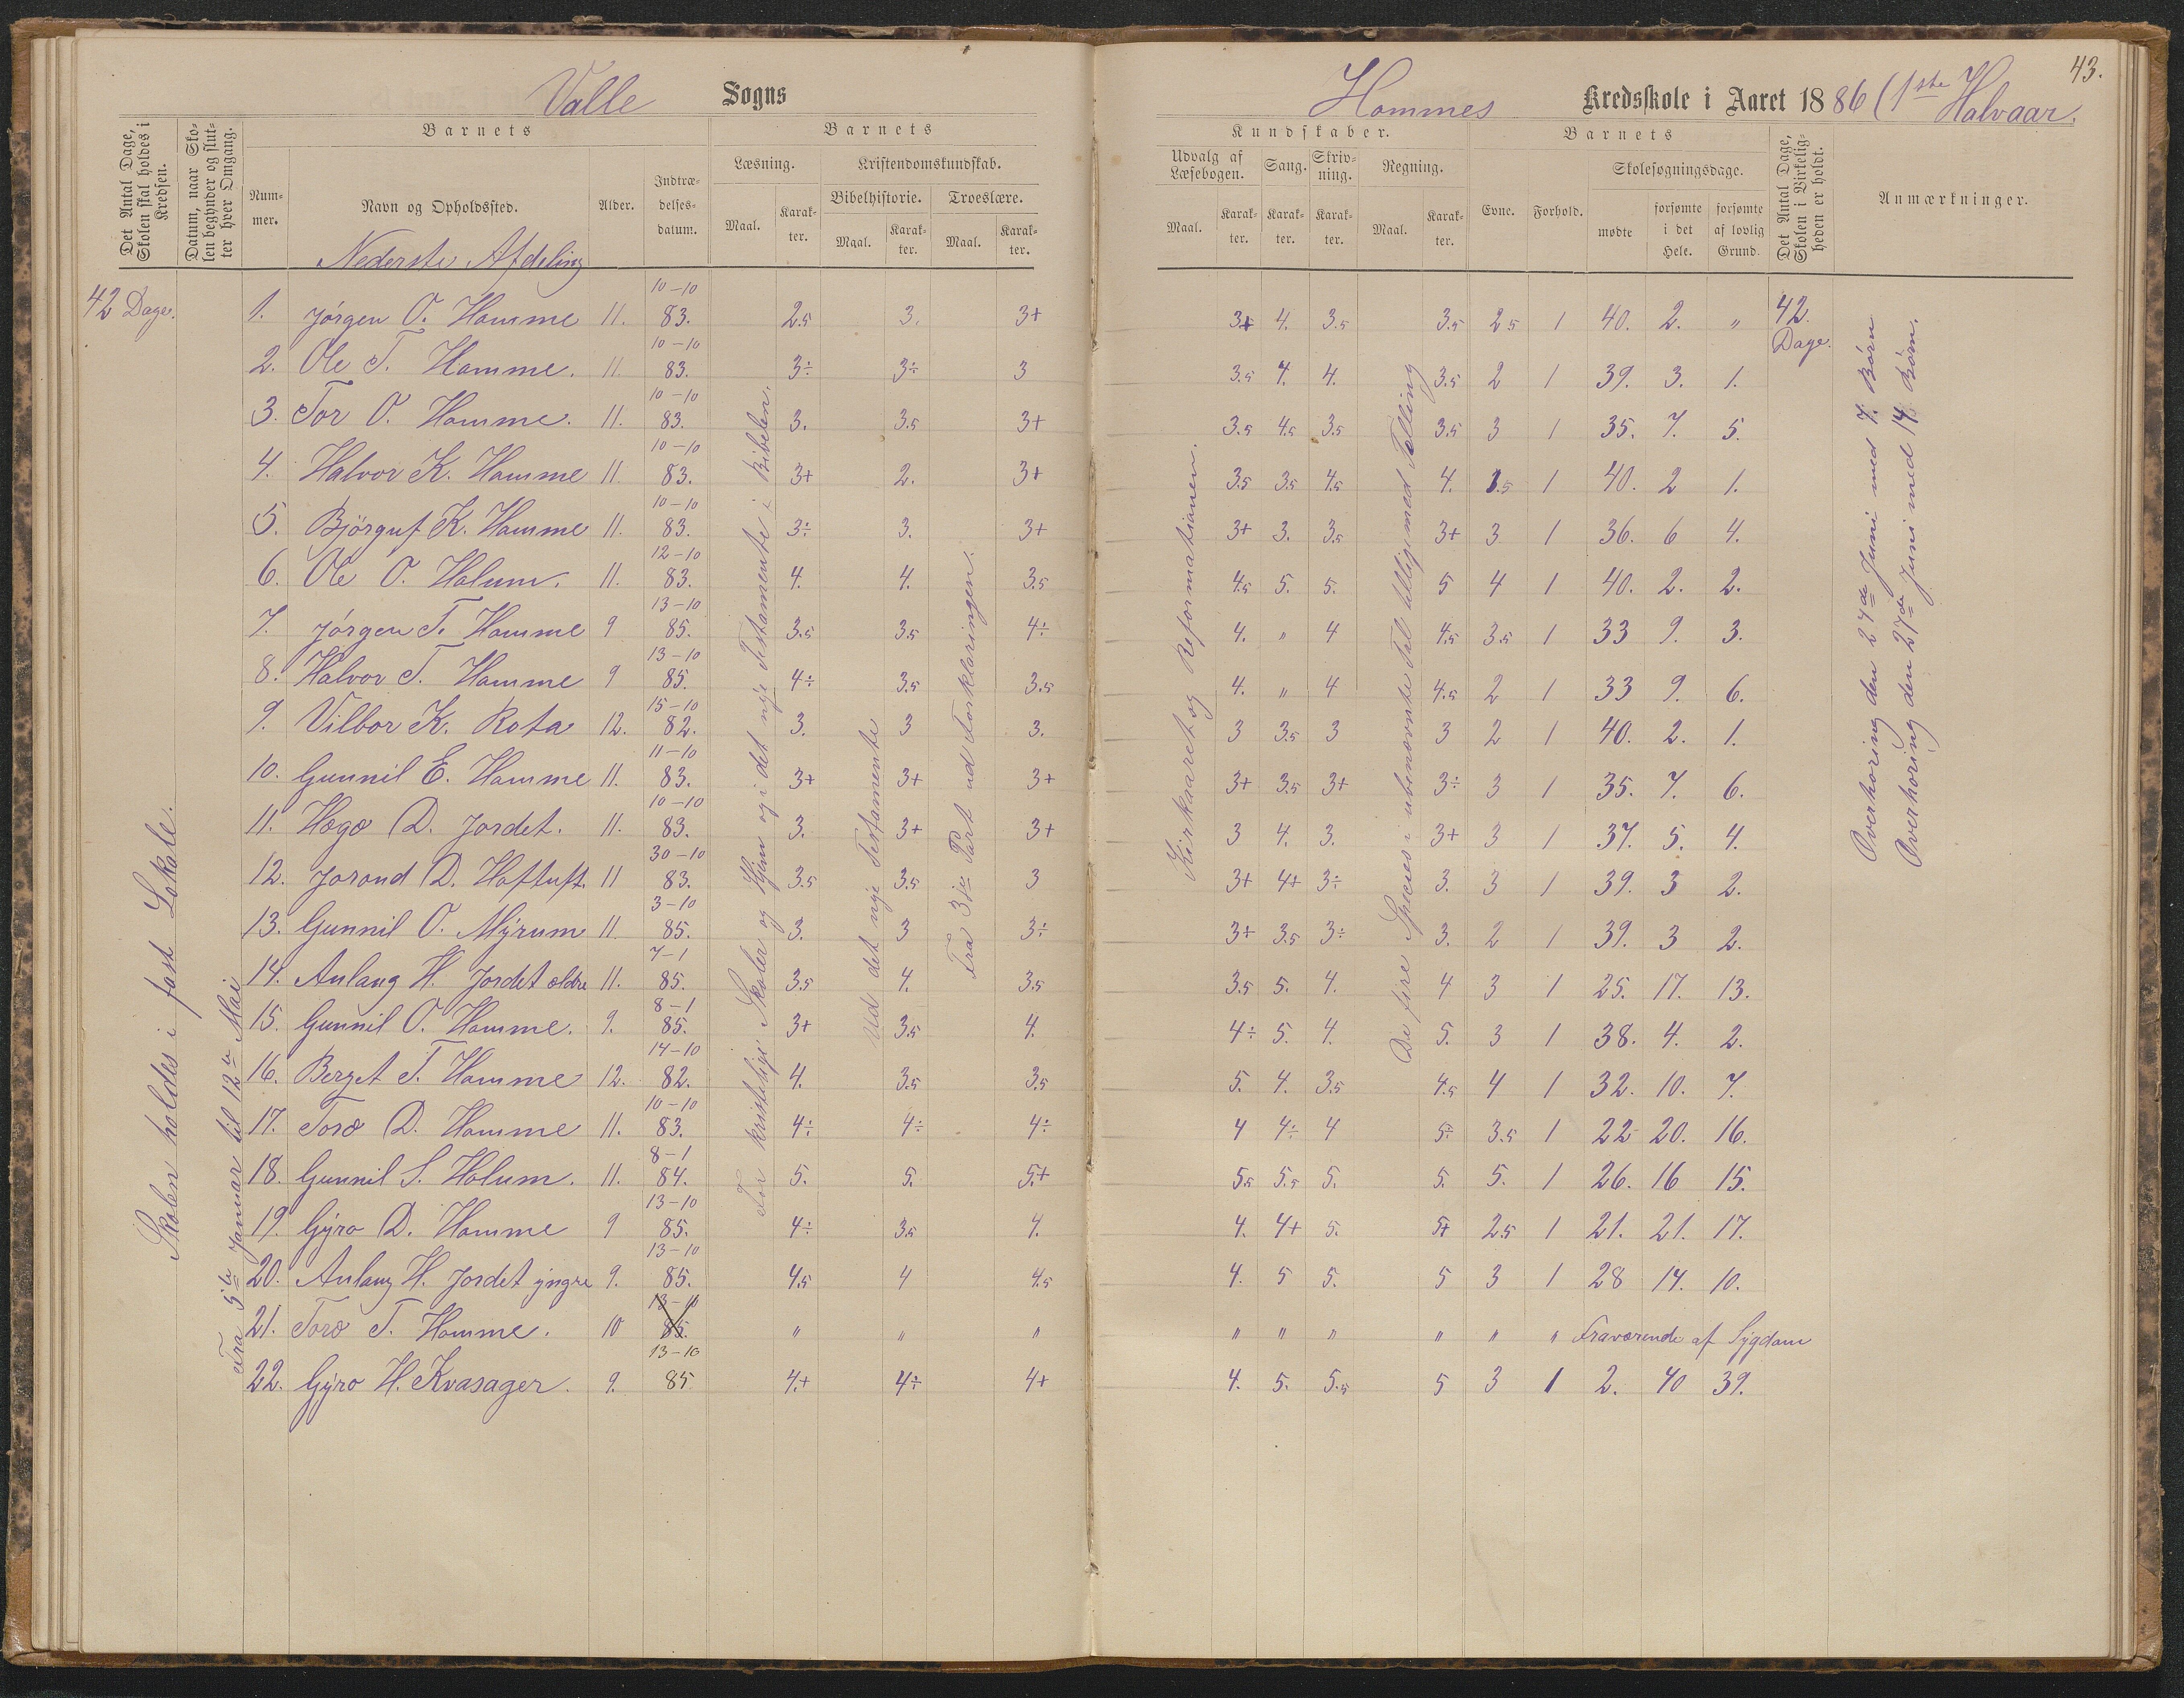 43.
Valle Sogns
Hommes Kredsskole i Aaret 1886 (1ste Halvaar.
Det Antal Dage, Skolen skal holdes i Kredsen.
Datum, naar Skolen begynder og slutter hver Omgang.
Barnets
Nummer.
Navn og Opholdssted.
Alder.
Indtrædelsesdatum.
Barnets
Læsning.
Maal.
Karakter.
Kristendomskundskab.
Bibelhistorie.
Maal.
Karakter.
Troeslære.
Maal.
Karakter.
Kundskaber.
Udvalg af Læsebogen.
Maal.
Karakter.
Sang.
Karakter.
Skrivning.
Karakter.
Regning.
Maal.
Karakter.
Barnets
Evne.
Forhold.
Skolesøgningsdage.
mødte
forsømte i det Hele.
forsømte af lovlig Grund.
Det Antal Dage, Skolen i Virkeligheden er holdt.
Anmærkninger.
Nederste Afdeling
42 Dage.
1. Jørgen O. Homme 11. 10-10 83. 2.5 3. 3+ 3+ 4. 3.5 3.5 2.5 1 40. 2. " 42. Dage.
2. Ole T. Homme. 11. 10-10 83. 3÷ 3÷ 3 3.5 4. 4. 3.5 2 1 39. 3. 1.
3. Tor O. Homme. 11. 10-10 83. 3. 3.5 3+ 3.5 4.5 3.5 3.5 3 1 35. 7. 5.
4. Halvor K. Homme 11. 10-10 83. 3+ 2. 3+ 3.5 3.5 4.5 4. 3.5 1 40. 2 1.
5. Bjørguf K. Homme 11. 10-10 83. 3÷ 3. 3+ 3+ 3. 3.5 3+ 3 1 36. 6 4.
6. Ole O. Holum. 11. 12-10 83. 4. 4. 3.5 4.5 5. 5. 5 4 1 40. 2. 2.
7. Jørgen T. Homme 9 13-10 85. 3.5 3.5 4÷ 4. " 4 4.5 3.5 1 33 9. 3.
8. Halvor T. Homme 9 13-10 85. 4÷ 3.5 3.5 4. " 4 4.5 2 1 33 9. 6.
9. Vilbor K. Rota 12. 15-10 82. 3. 3 3. 3 3.5 3 3 2 1 40. 2. 1.
10. Gunnil E. Homme 11. 11-10 83. 3+ 3+ 3+ 3+ 3.5 3+ 3÷ 3 1 35. 7. 6.
11. Hægo D. Jordet. 11. 10-10 83. 3. 3+ 3+ 3 4. 3. 3+ 3 1 37. 5. 4.
12. Jorond D. Hoftuft. 11 30-10 83. 3.5 3.5 3 3+ 4+ 3÷ 3. 3 1 39. 3 2.
13. Gunnil O. Myrum 11 3-10 85. 3. 3 3÷ 3+ 3.5 3÷ 3. 2 1 39. 3 2.
14. Aulaug H. Jordet ældre 11. 7-1 85. 3.5 4. 3.5 3.5 5. 4. 4 3 1 25. 17. 13.
15. Gunnil O. Homme. 9. 8-1 85. 3+ 3.5 4. 4÷ 5. 4. 5. 3 1 38. 4. 2.
16. Berget T. Homme 12. 14-10 82. 4. 3.5 3.5 5. 4. 3.5 4.5 4 1 32. 10. 7.
17. Toro D. Homme 11. 10-10 83. 4÷ 4÷ 4÷ 4 4÷ 4 5÷ 3.5 1 22 20. 16.
18. Gunnil S. Holum. 11. 8-1 84. 5. 5. 5+ 5.5 5.5 5. 5. 5. 1 26. 16 15.
19. Gyro D. Homme 9 13-10 85. 4÷ 3.5 4. 4. 4+ 5. 5+ 2.5 1 21. 21. 17.
20. Aulaug H. Jordet yngre 9. 13-10 85. 4.5 4 4.5 4. 5 5. 5 3 1 28 14. 10.
21. Toro T. Homme. 10 13-10 85. " " " " " " " " " Fraværende af Sygdom
22. Gyro H. Kvasager. 9. 13-10 85 4+ 4÷ 4+ 4. 5. 5.5 5 3 1 2. 40 39.
Skolen holdes i fast Lokale.
Fra 5te Januar til 12te Mai
For kristelige Skoler og Hjem og i det nye Testamente i Bibelen.
Ud det nye Testamente
Fra 3die Part ud Forklaringen.
Kirkeaaret og Reformationen.
De fire Species i ubenævnte Tal tilligemed Tælling
Overhøring den 24de Juni med 7 Børn
Overhøring den 27de Juni med 14 Børn.